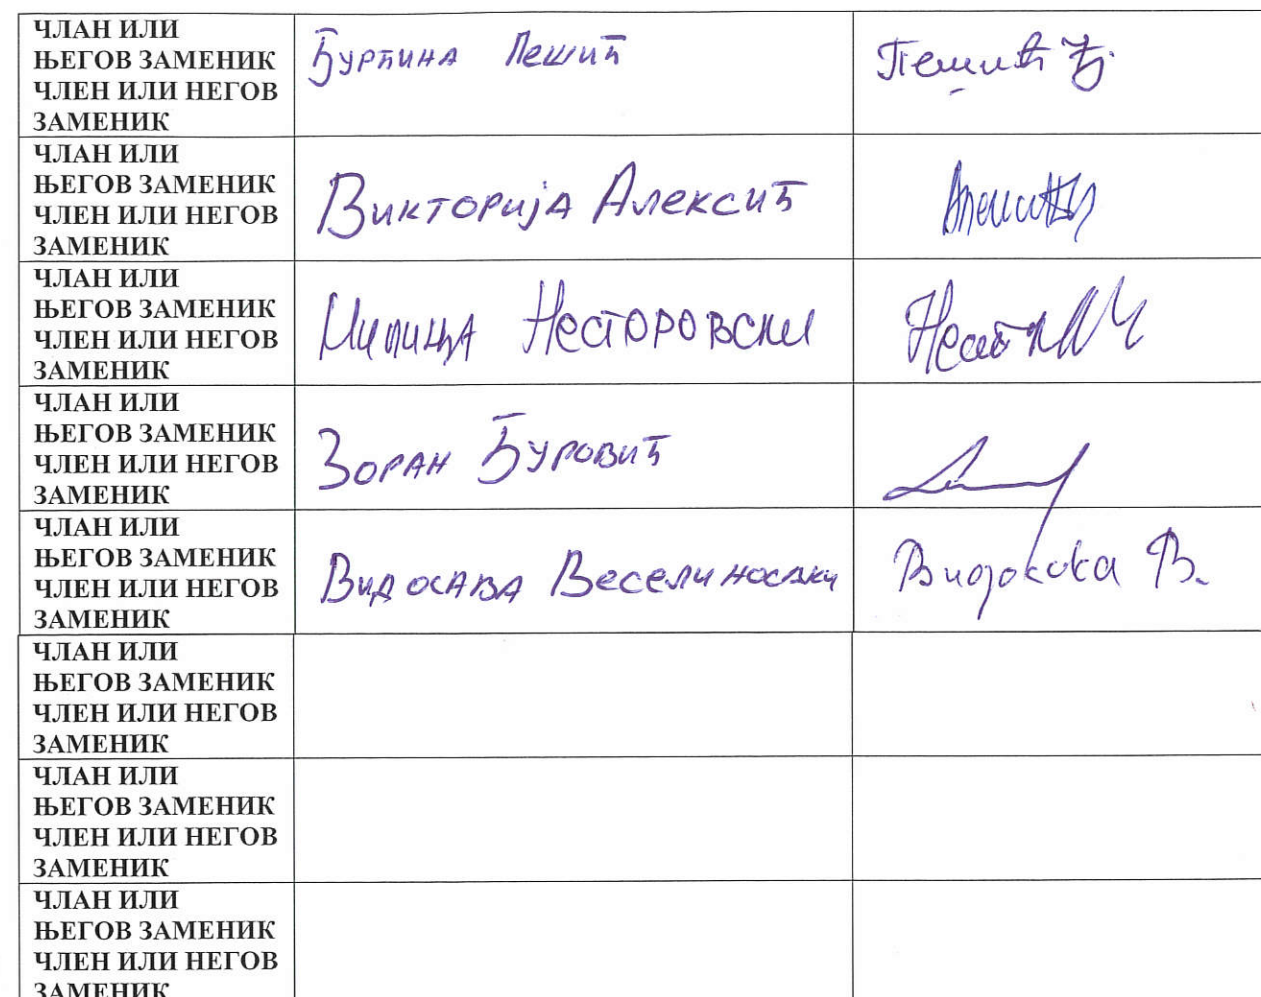 ЧЛАН ИЛИ
ЊЕГОВ ЗАМЕНИК
ЧЛЕН ИЛИ НЕГОВ
ЗАМЕНИК
Ђурђина Пешић
Пешић Ђ.
ЧЛАН ИЛИ
ЊЕГОВ ЗАМЕНИК
ЧЛЕН ИЛИ НЕГОВ
ЗАМЕНИК
Викторија Алексић
ЧЛАН ИЛИ
ЊЕГОВ ЗАМЕНИК
ЧЛЕН ИЛИ НЕГОВ
ЗАМЕНИК
Милица Несторовски
ЧЛАН ИЛИ
ЊЕГОВ ЗАМЕНИК
ЧЛЕН ИЛИ НЕГОВ
ЗАМЕНИК
Зоран Ђуровић
ЧЛАН ИЛИ
ЊЕГОВ ЗАМЕНИК
ЧЛЕН ИЛИ НЕГОВ
ЗАМЕНИК
Видосава
В.
ЧЛАН ИЛИ
ЊЕГОВ ЗАМЕНИК
ЧЛЕН ИЛИ НЕГОВ
ЗАМЕНИК
ЧЛАН ИЛИ
ЊЕГОВ ЗАМЕНИК
ЧЛЕН ИЛИ НЕГОВ
ЗАМЕНИК
ЧЛАН ИЛИ
ЊЕГОВ ЗАМЕНИК
ЧЛЕН ИЛИ НЕГОВ
ЗАМЕНИК